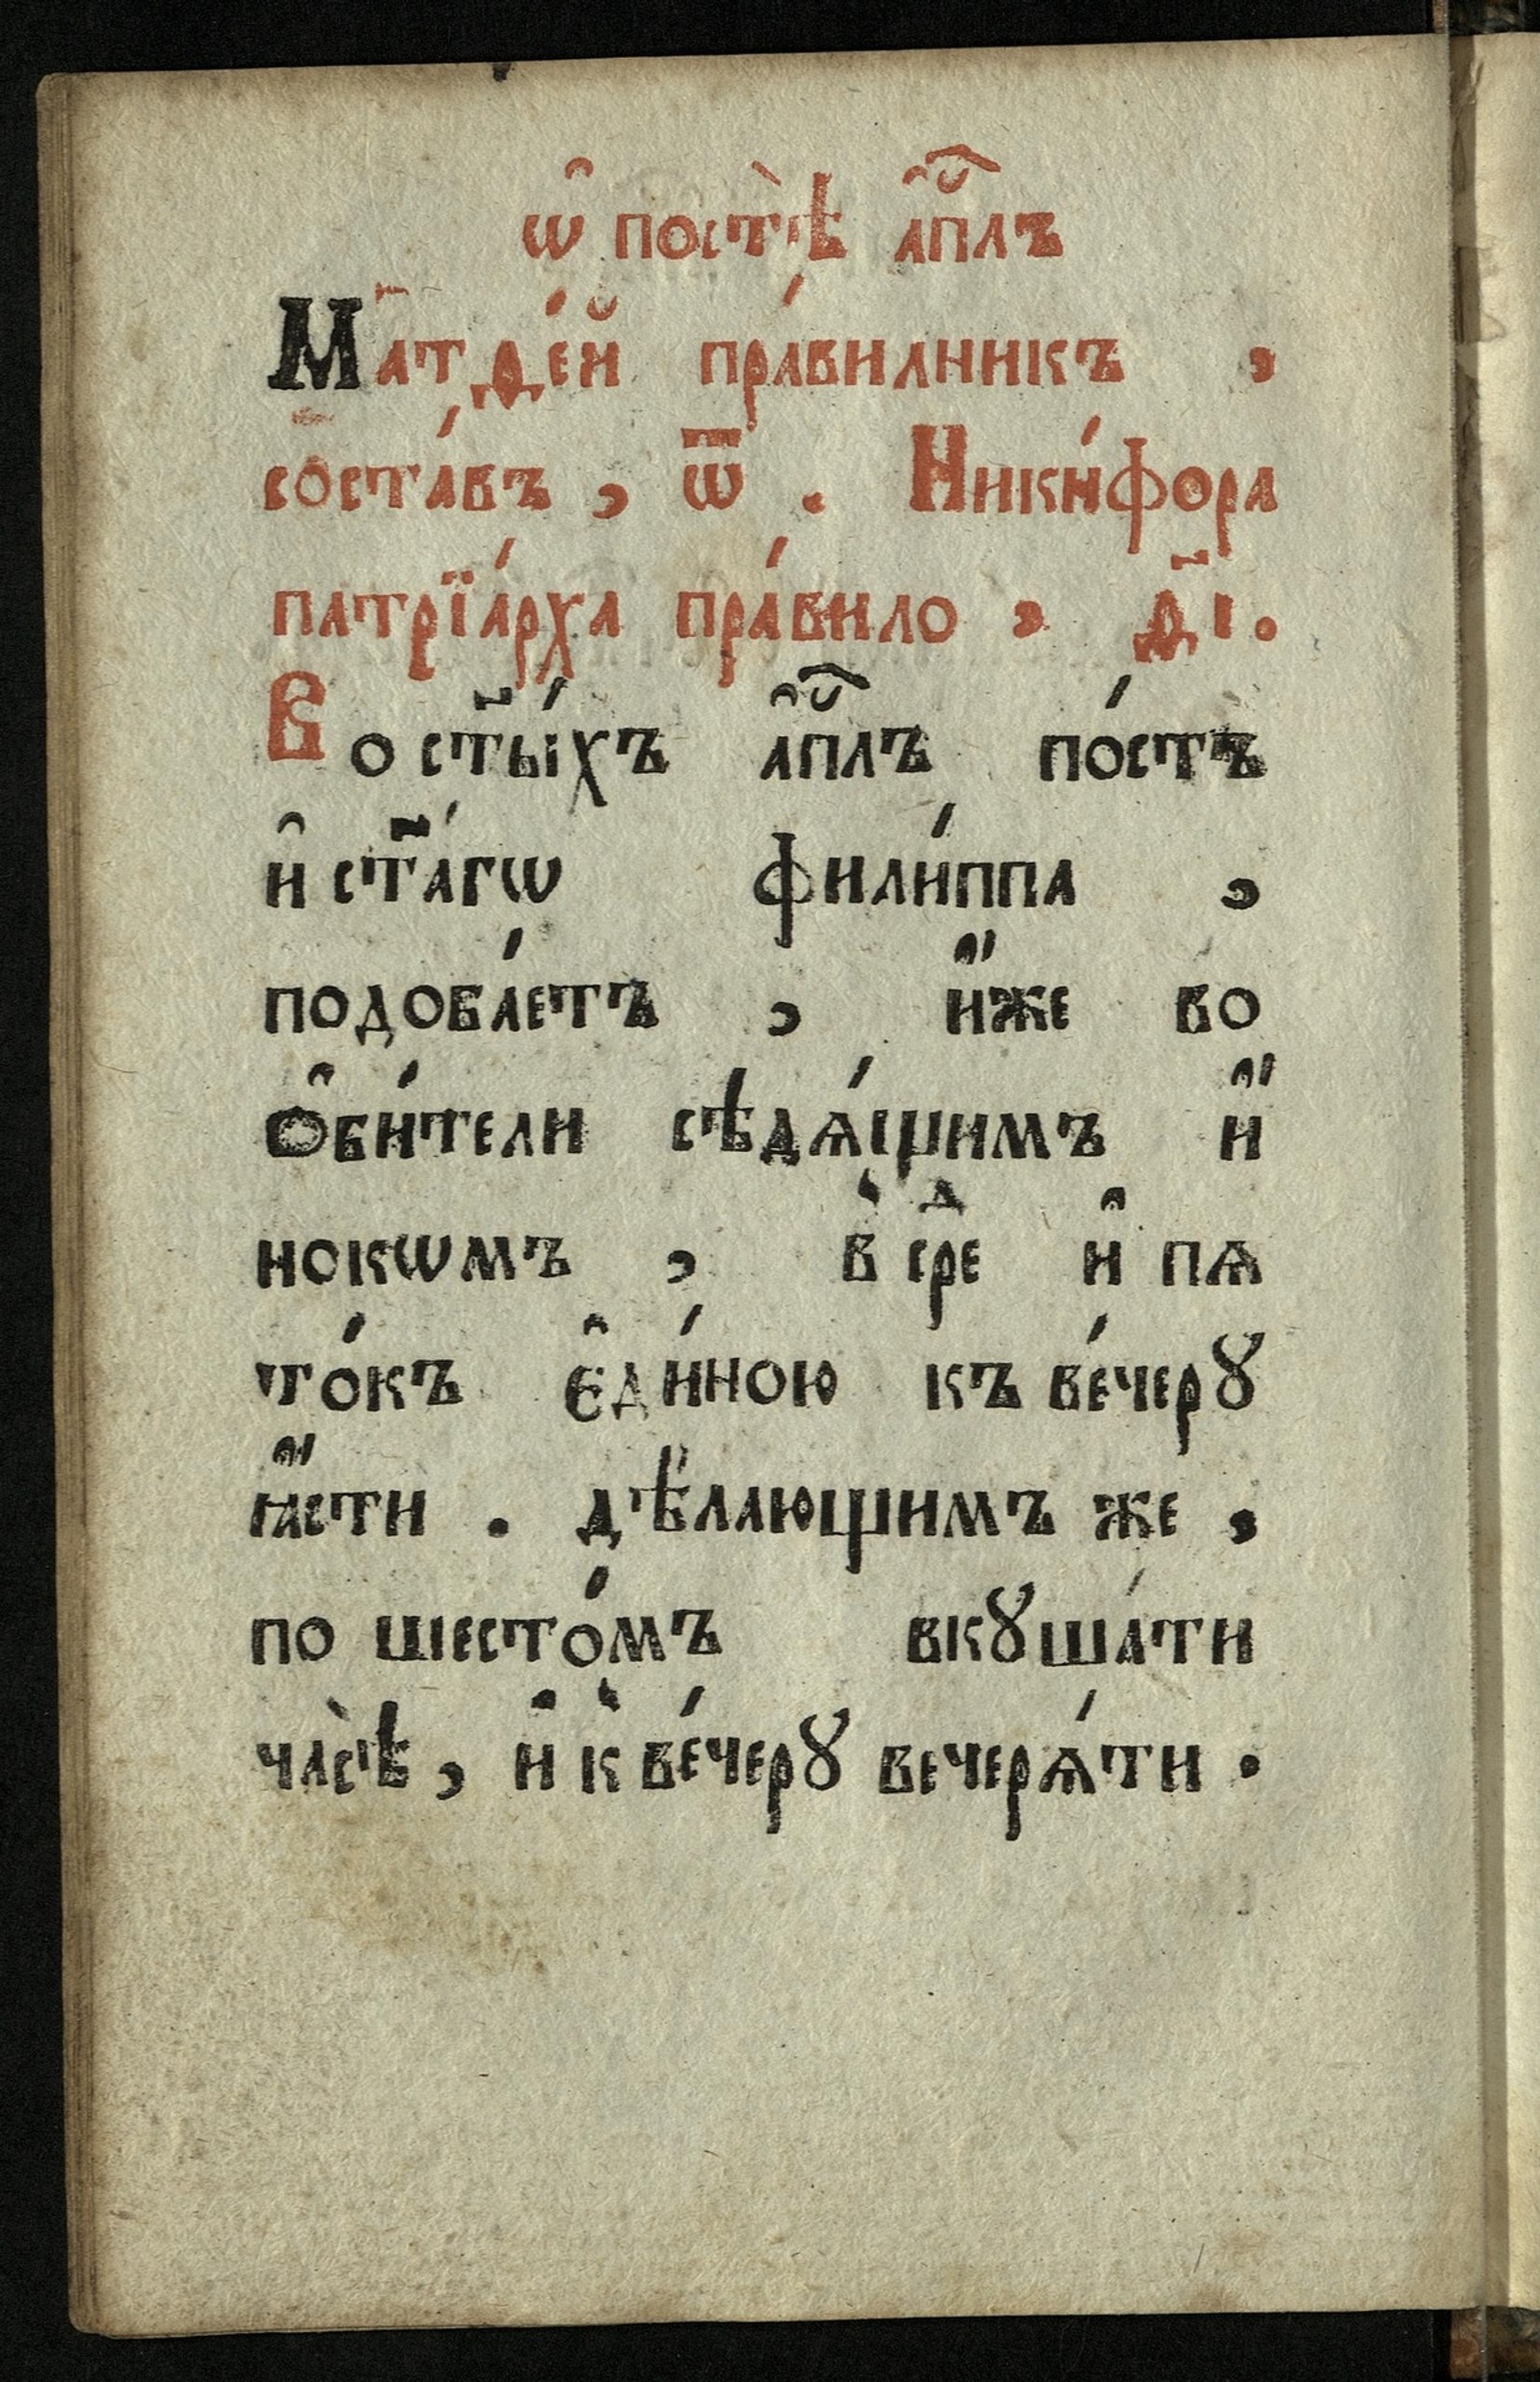 ѡ҆ постѣ̀ а҆пⷭ҇лъ
Матдⷵе́й пра́вилникъ ,
соста́въ , ѿ . Ники́фора
патрїа́рха пра́вило , д҃і .
Во ст҃ы́хъ а҆пⷭ҇лъ по́стъ
и҆ ст҃а́гѡ фили́ппа ,
подоба́етъ , и҆́же во
ѻ҆би́тели сѣдѧ́щимъ и҆́
нокѡмъ , в̾ среⷣ и҆ пѧ
то́къ є҆ди́ною къ ве́черꙋ
ꙗ҆́сти . дѣ́лающимъ же ,
по шесто́мъ вкꙋша́ти
часѣ̀ , и҆ к̾ ве́черꙋ вечерѧ́ти .